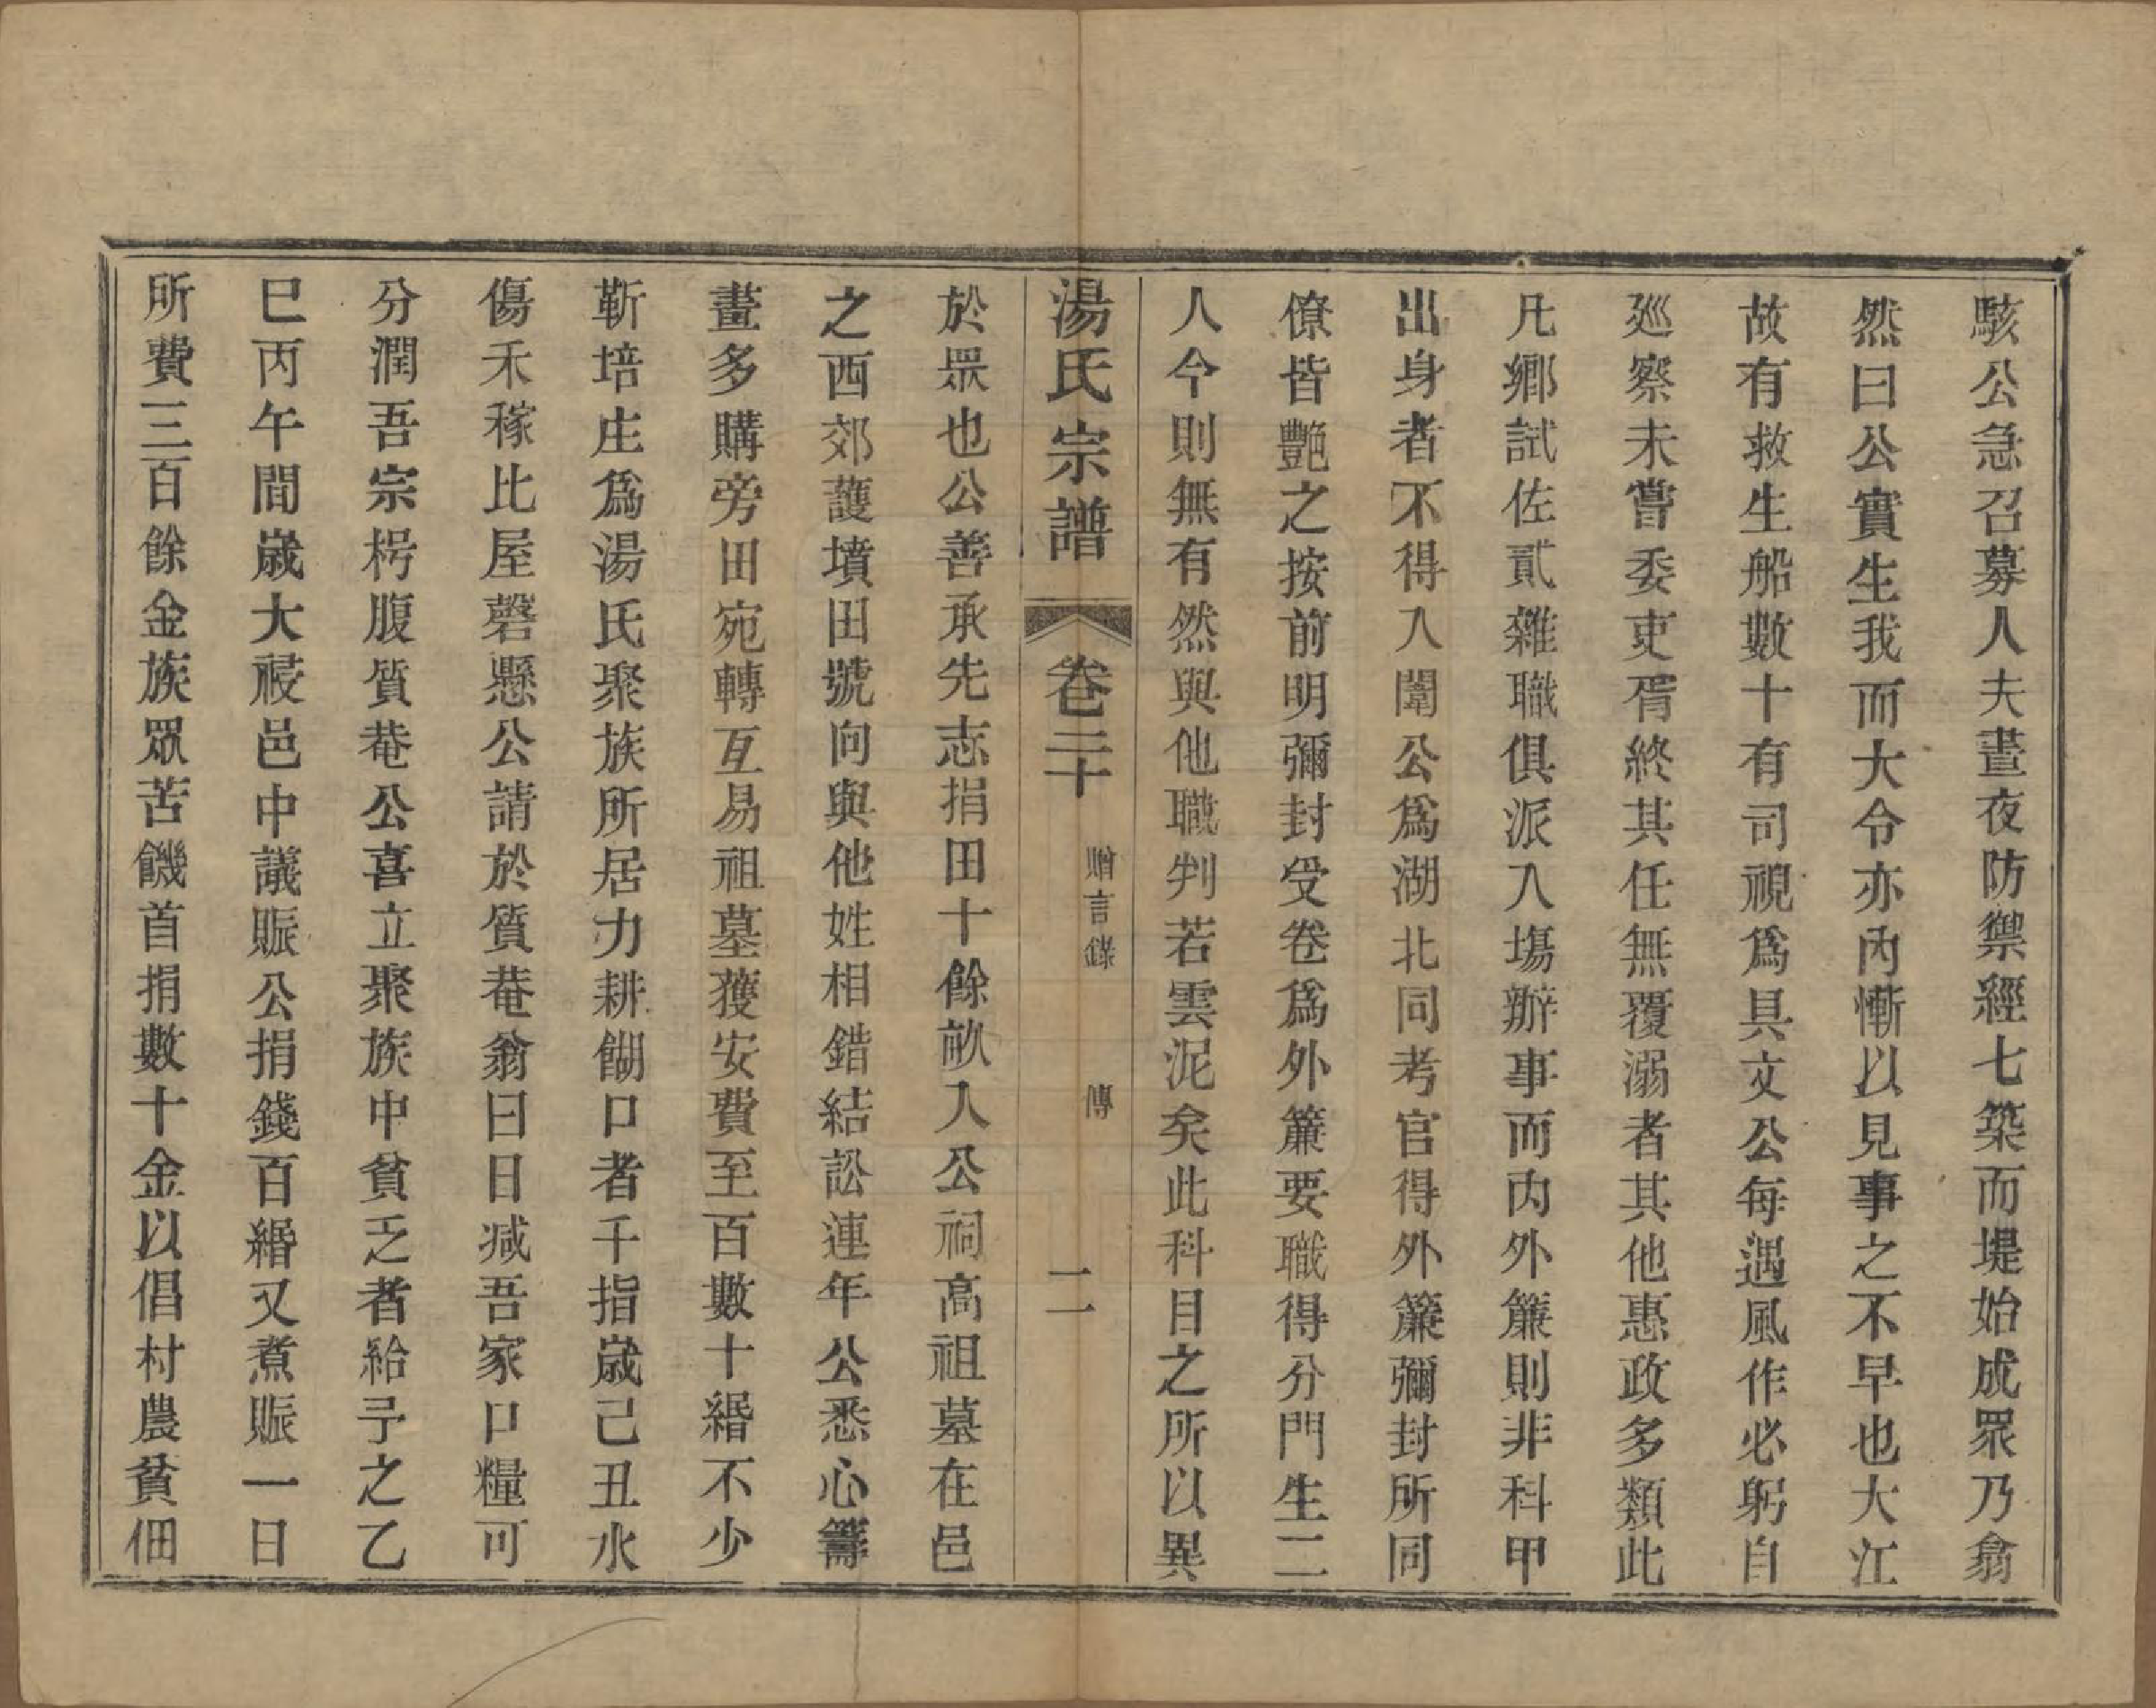 駭公急召募人夫晝夜防禦經七築而堤始成眾乃翕
然曰公實生我而大令亦內慚以見事之不早也大江
故有救生船數十有司視為具文公每遇風作必躬自
廵察未嘗委吏胥終其任無覆溺者其他惠政多類此
凡鄉試佐貳雜職俱派入塲辦事而內外簾則非科甲
出身者不得入闈公為湖北同考官得外簾彌封所同
僚皆艷之按前明彌封受卷為外簾要職得分門生二
人今則無有然與他職判若雲泥矣此科目之所以異
湯氏宗譜 卷二十 贈言錄 傳 二
於眾也公善承先志捐田十餘畝入公祠高祖墓在邑
之西郊護墳田號向與他姓相錯結訟連年公悉心籌
畫多購旁田宛轉互易祖墓獲安費至百數十緡不少
靳培庄為湯氏聚族所居力耕餬口者千指歲己丑水
傷禾稼比屋磬懸公請於質菴翁曰日減吾家口糧可
分潤吾宗枵腹質菴公喜立聚族中貧乏者給予之乙
巳丙午間歲大祲邑中議賑公捐錢百緡又煮賑一日
所費三百餘金族眾苦饑首捐數十金以倡村農貧佃